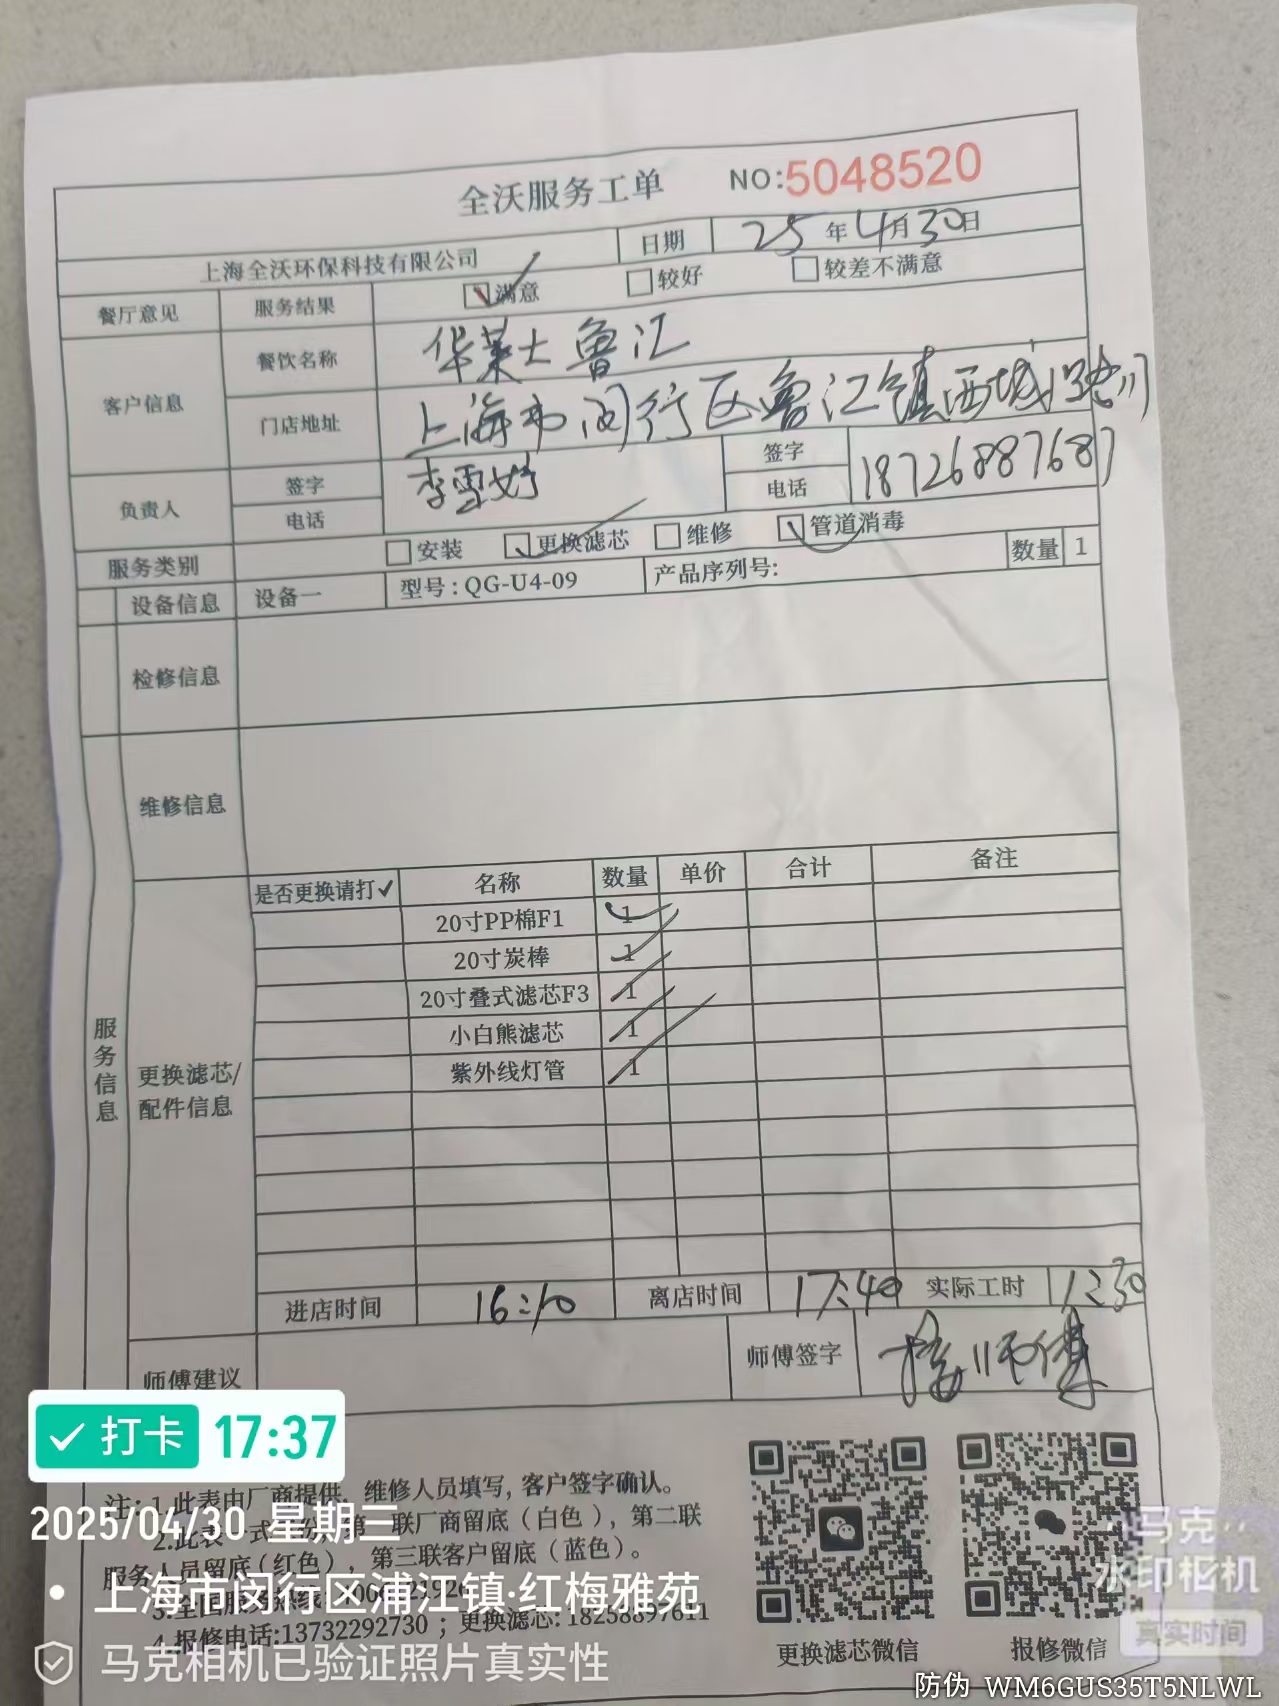 全沃服务工单 NO:5048520
上海全沃环保科技有限公司 日期 25年4月30日
餐厅意见 服务结果 满意 较好 较差不满意
客户信息 餐饮名称 华莱士鲁汇
门店地址 上海市闵行区鲁汇镇西城路
负责人 签字 李雪 签字
电话 电话 18726887687
服务类别 安装 更换滤芯 维修 管道消毒
设备信息 设备一 型号:QG-U4-09 产品序列号: 数量 1
检修信息
维修信息
服务信息
更换滤芯/配件信息
是否更换请打✓ 名称 数量 单价 合计 备注
20寸PP棉F1 1
20寸炭棒 1
20寸叠式滤芯F3 1
小白熊滤芯 1
紫外线灯管 1
进店时间 16:10 离店时间 17:40 实际工时 1:30
师傅建议 师傅签字 师傅
打卡 17:37
注:1.此表由厂商提供,维修人员填写,客户签字确认。
2025/04/30 星期三
2.此表一式 份,第一联厂商留底(白色),第二联
服务人员留底(红色),第三联客户留底(蓝色)。
上海市闵行区浦江镇·红梅雅苑
3.全国服务热线
4.报修电话:13732292730;更换滤芯:
更换滤芯微信 报修微信
马克相机已验证照片真实性
马克
水印相机
真实时间
防伪 WM6GUS35T5NLWL